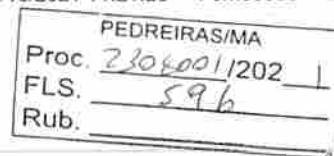 PEDREIRAS/MA
Proc. 2304001/2021
FLS. 596
Rub.